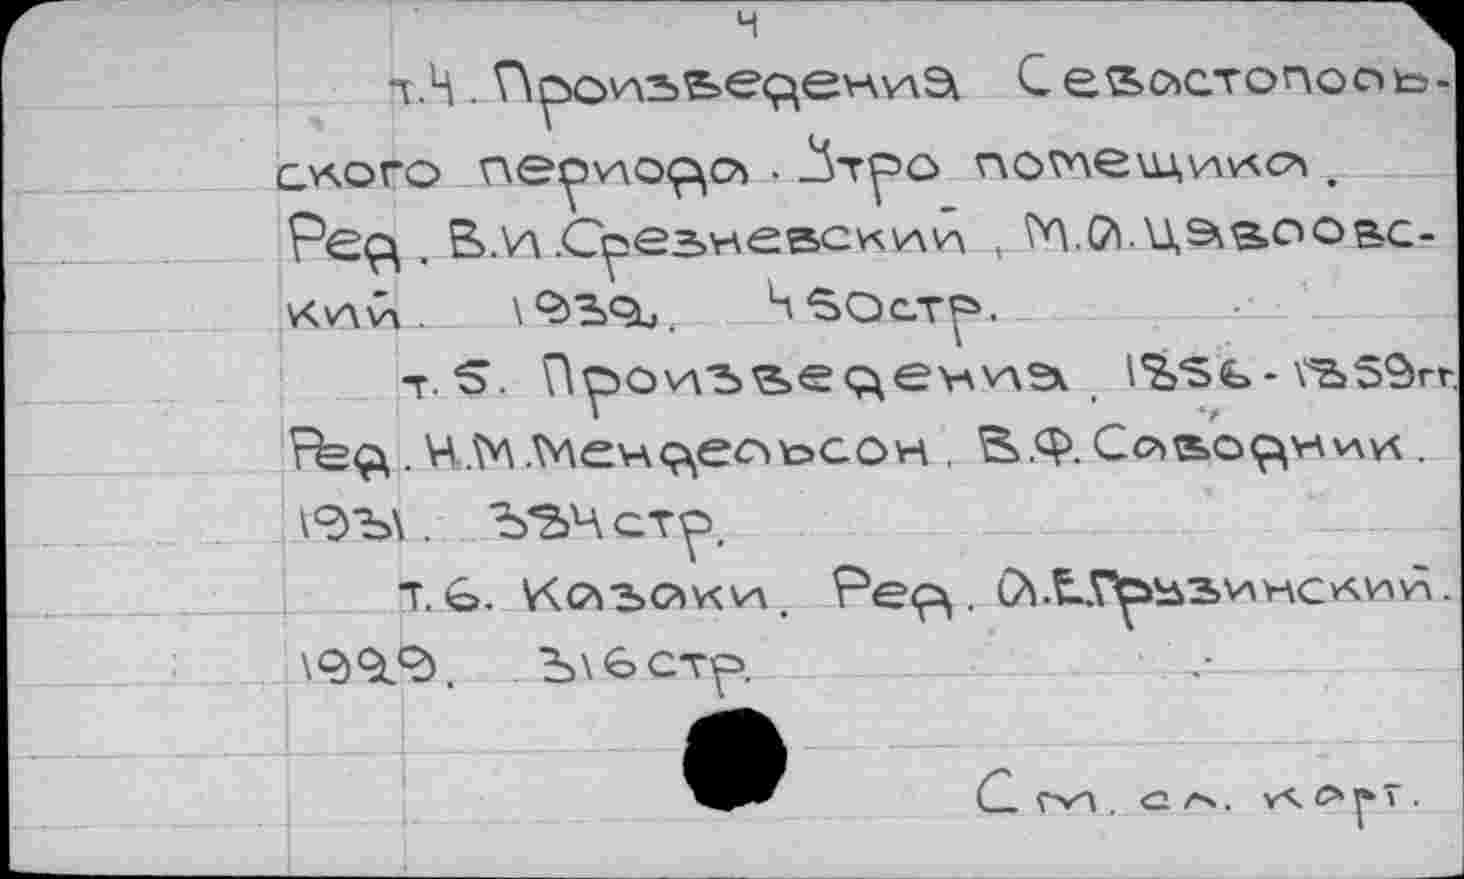 4
т.4. Произведения Севастополь-
ского периода. Утро помещика.
Ред. В.И.Срезневский, М.А.Цявловс-
кий. 1932. 450стр.
т.5. Произведения 1856-1859гг.
Ред. Н.М.Мендельсон. В.Ф.Саводник.
1931. 384стр.
т.6. Казаки. Ред. А.Е.Грузинский.
1929. 316стр.
См. сл. карт.